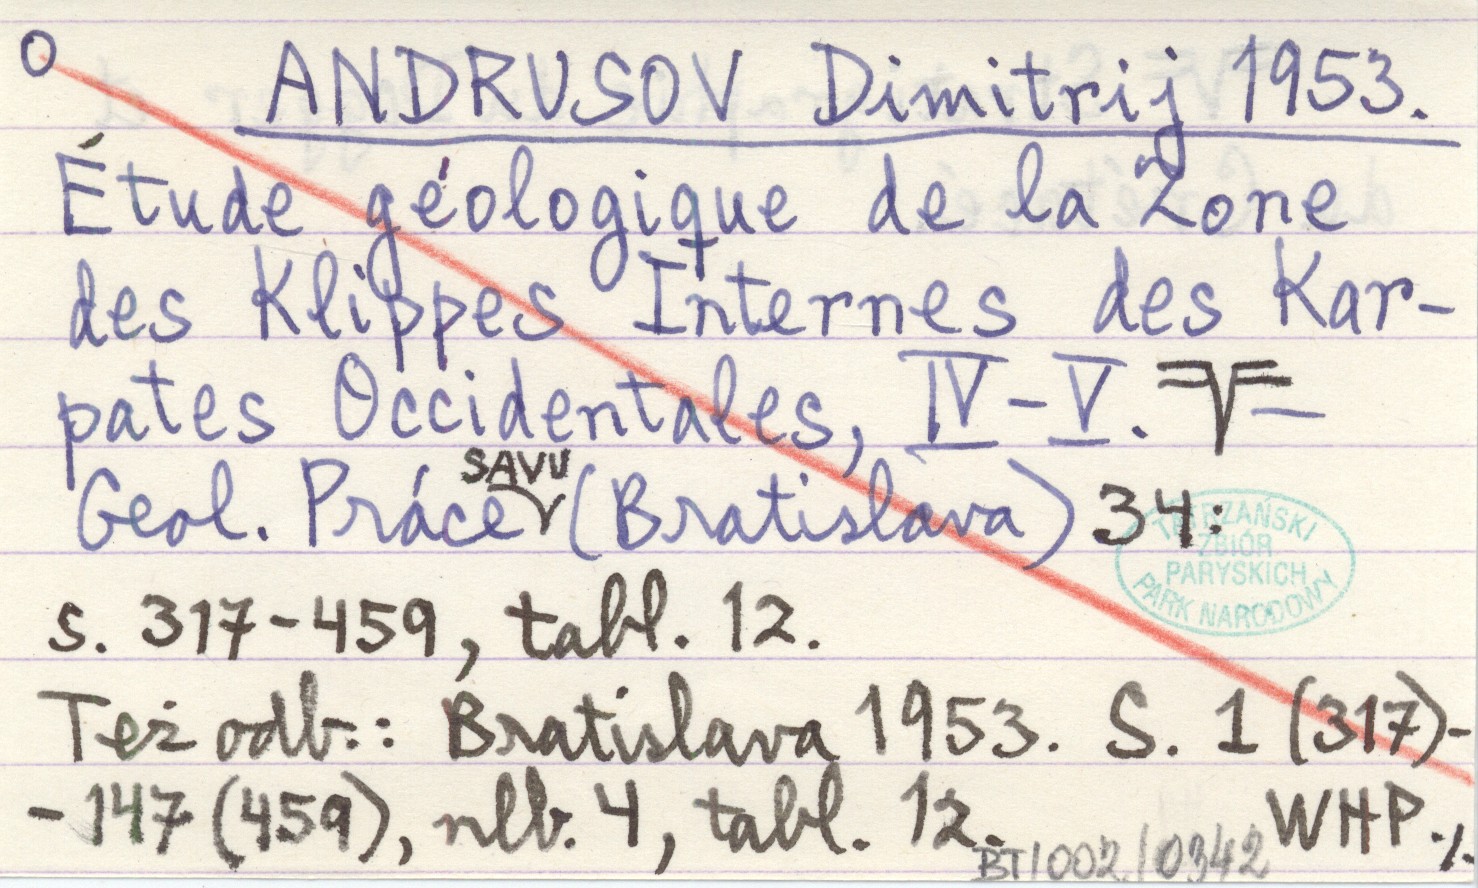 O ANDRUSOV Dimitrij 1953.
Étude géologique de la Zone
des Klippes Internes des Kar-
pates Occidentales, IV-V.
SAVU
Geol. Práce (Bratislava) 34:
TATRZAŃSKI
ZBIÓR
PARYSKICH
PARK NARODOWY
s. 317-459, tabl. 12.
Też odb.: Bratislava 1953. S. 1 (317)-
-147 (459), nlb. 4, tabl. 12. WHP ./.
BT/002/0342